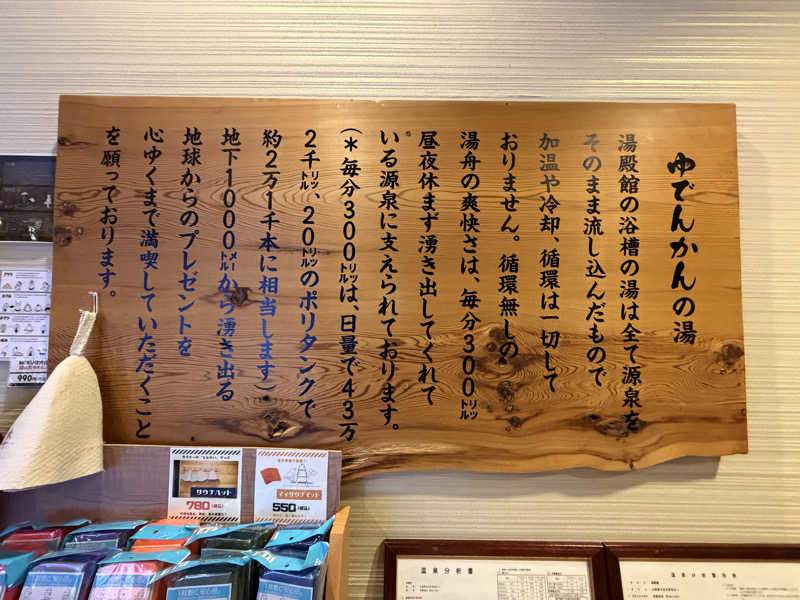 ゆでんかんの湯
湯殿館の浴槽の湯は全て源泉を
そのまま流し込んだもので
加温や冷却、循環は一切して
おりません。循環無しの
湯舟の爽快さは、毎分300㍑
昼夜休まず湧き出してくれて
いる源泉に支えられております。
(*毎分300㍑は、日量で43万
2千㍑、20㍑のポリタンクで
約2万1千本に相当します)
地下1000㍍から湧き出る
地球からのプレゼントを
心ゆくまで満喫していただくこと
を願っております。
990円
サウナハット
780(税込)
マイサウナマット
550(税込)
温泉分析書